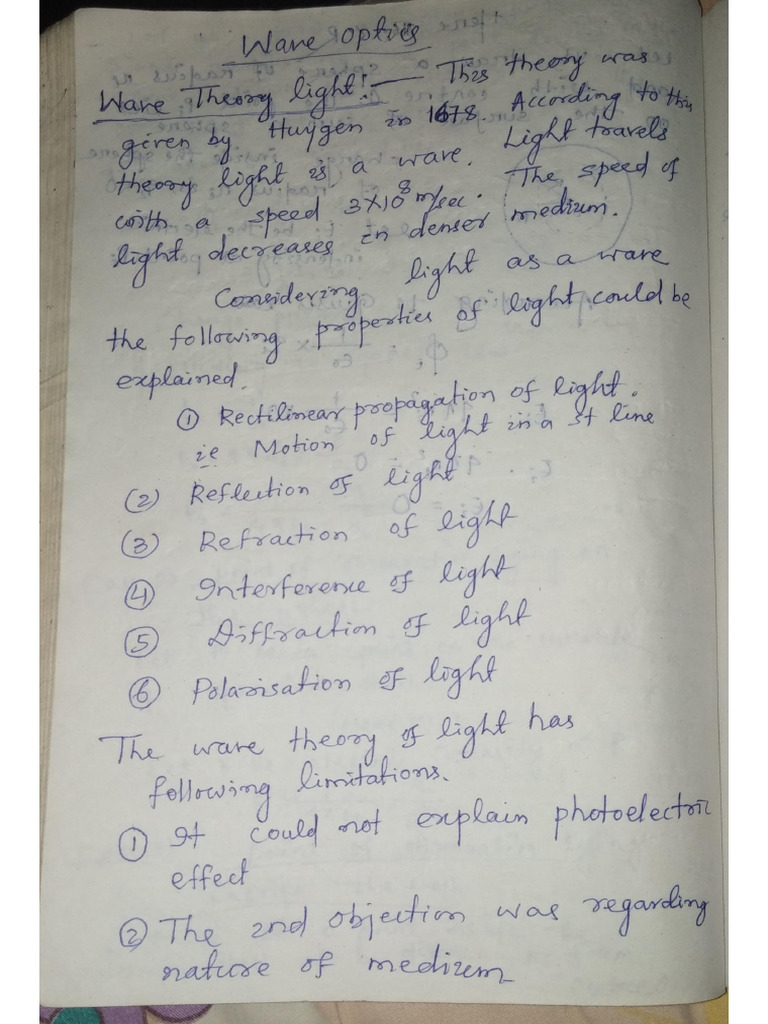 Wave Optics
Wave Theory light:— This theory was
given by Huygen in 1678. According to this
theory light is a wave. Light travels
with a speed 3×10⁸ m/sec. The speed of
light decreases in denser medium.
Considering light as a wave
the following properties of light could be
explained.
① Rectilinear propagation of light.
ie Motion of light in a st line
(2) Reflection of light
(3) Refraction of light
④ Interference of light
⑤ Diffraction of light
⑥ Polarisation of light
The wave theory of light has
following limitations.
① It could not explain photoelectric
effect
② The 2nd objection was regarding
nature of medium